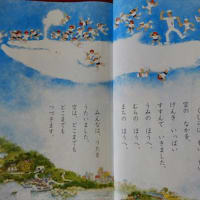 空の なかを、
げんき いっぱい
すすんで いきました。
うみの ほうへ、
むらの ほうへ、
まちの ほうへ。
みんなは、うたを
うたいました。
空は、どこまでも
どこまでも
つづきます。